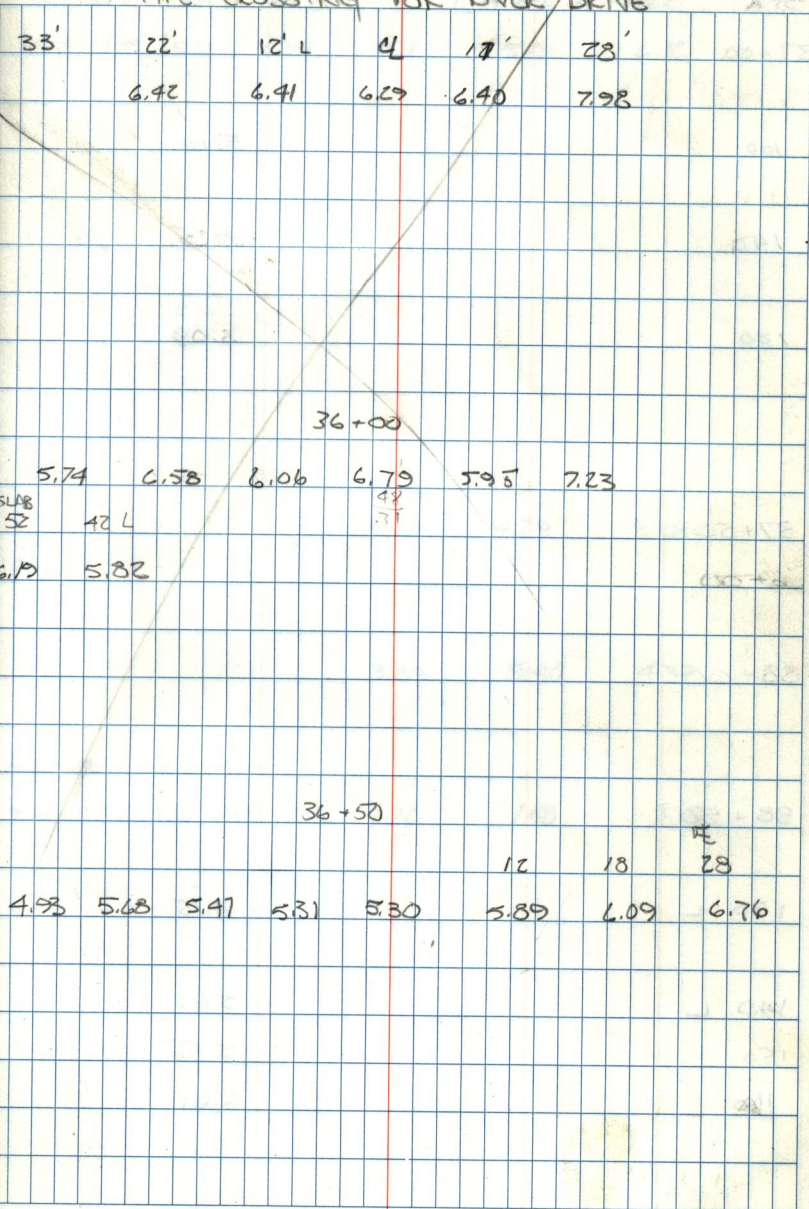 CROSSING FOR DRIVE
33' 22' 12' L ℄ 28'
6.42 6.41 6.29 6.40 7.98
36+00
5.74 6.58 6.06 6.79 5.95 7.23
SLAB 42
52 42 L .31
6.19 5.82
36+50
12 18 28
4.93 5.68 5.47 5.31 5.30 5.89 6.09 6.76